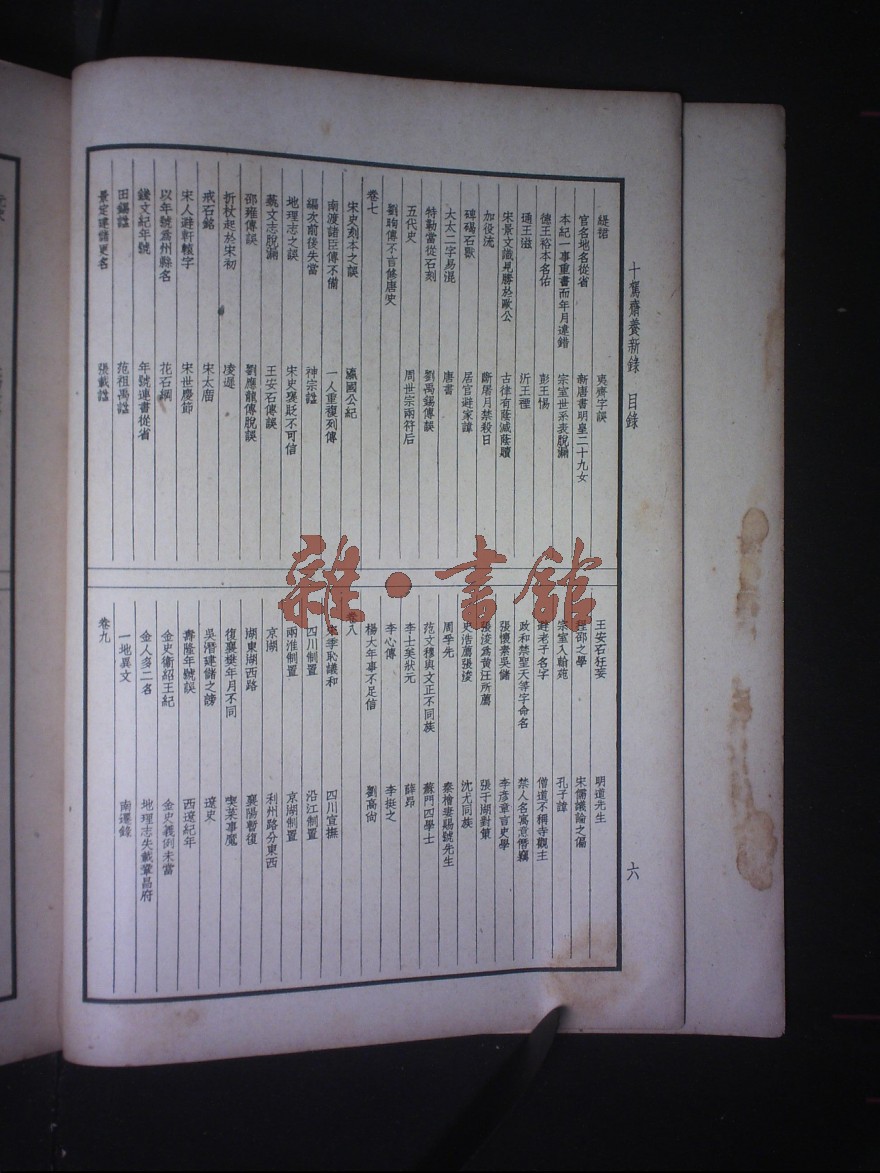 十駕齋養新錄　目錄
緹裙　夷齊字誤
官名地名從省　新唐書明皇二十九女
本紀一事重書而年月違錯　宗室世系表脫漏
德王裕本名佑　彭王惕
通王滋　沂王禋
宋景文識見勝於歐公　古律有蔭減蔭贖
加役流　斷屠月禁殺日
碑碣石獸　居官避家諱
大太二字易混　唐書
特勒當從石刻　劉禹錫傳誤
五代史　周世宗兩符后
劉昫傳不言修唐史
卷七
宋史刻本之誤　瀛國公紀
南渡諸臣傳不備　一人重複列傳
編次前後失當　神宗諡
地理志之誤　宋史襃貶不可信
藝文志脫漏　王安石傳誤
邵雍傳誤　劉應龍傳脫誤
折杖起於宋初　凌遲
戒石銘　宋太廟
宋人避軒轅字　宋世慶節
以年號爲州縣名　花石綱
錢文紀年號　年號連書從省
田錫諡　范祖禹諡
景定建儲更名　張載諡
王安石狂妄　明道先生
程邵之學　宋儒議論之偏
宗室入翰苑　孔子諱
避老子名字　僧道不稱寺觀主
政和禁聖天等字命名　禁人名寓意僭竊
張懷素吳儲　李彥章言史學
張浚爲黃汪所薦　張于湖對策
史浩薦張浚　沈尤同族
周孚先　秦檜妻賜號先生
范文穆與文正不同族　蘇門四學士
李士美狀元　薛昂
李心傳　李挺之
楊大年事不足信　劉高尙
卷八
宋季恥議和　四川宣撫
四川制置　沿江制置
兩淮制置　京湖制置
京湖　利州路分東西
湖東湖西路　襄陽暫復
復襄樊年月不同　喫菜事魔
吳潛建儲之謗　遼史
壽隆年號誤　西遼紀年
金史衞紹王紀　金史義例未當
金人多二名　地理志失載鞏昌府
一地異文　南遷錄
卷九
六
雜·書館